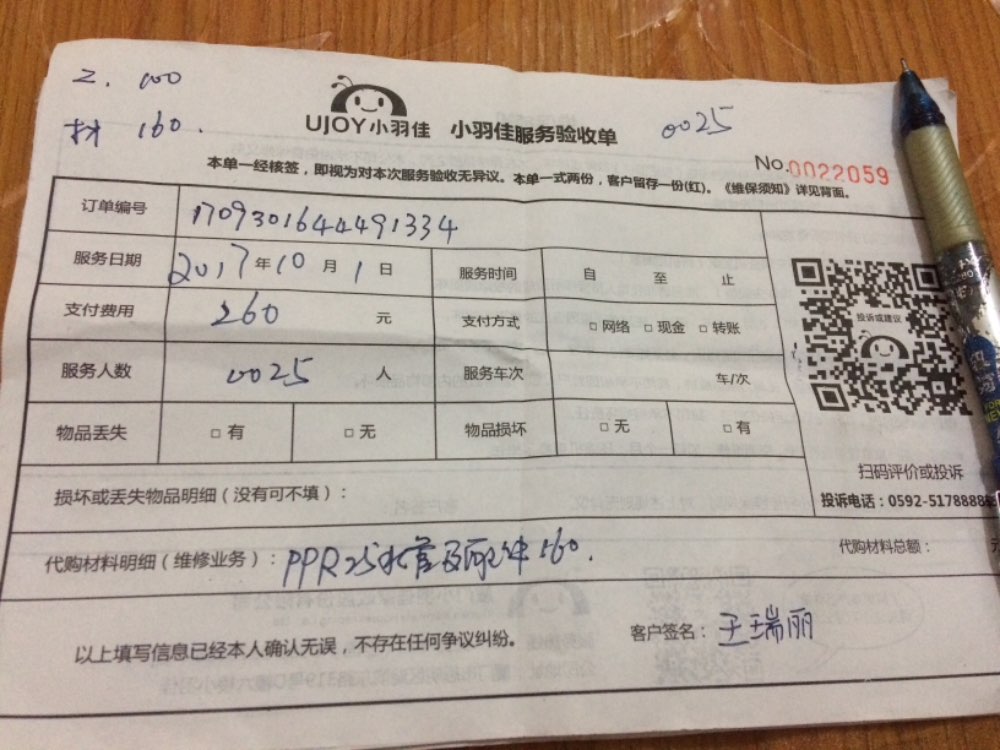 工. 100
材 160.
UJOY小羽佳 小羽佳服务验收单 0025
No.0022059
本单一经核签，即视为对本次服务验收无异议。本单一式两份，客户留存一份(红)。《维保须知》详见背面。
订单编号 1709301644491334
服务日期 2017年10月1日 服务时间 自 至 止
支付费用 260 元 支付方式 □网络 □现金 □转账
投诉或建议
服务人数 0025 人 服务车次 车/次
物品丢失 □有 □无 物品损坏 □无 □有
扫码评价或投诉
投诉电话：0592-5178888
损坏或丢失物品明细（没有可不填）：
代购材料明细（维修业务）：PPR25水管及配件160. 代购材料总额：
以上填写信息已经本人确认无误，不存在任何争议纠纷。 客户签名：王瑞丽